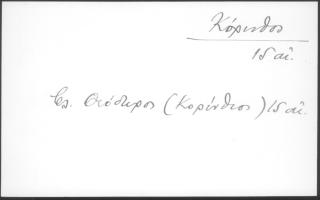 Κόρινθος
15 αἰ.
Βλ. Θεόδωρος (Κορίνθιος) 15 αἰ.